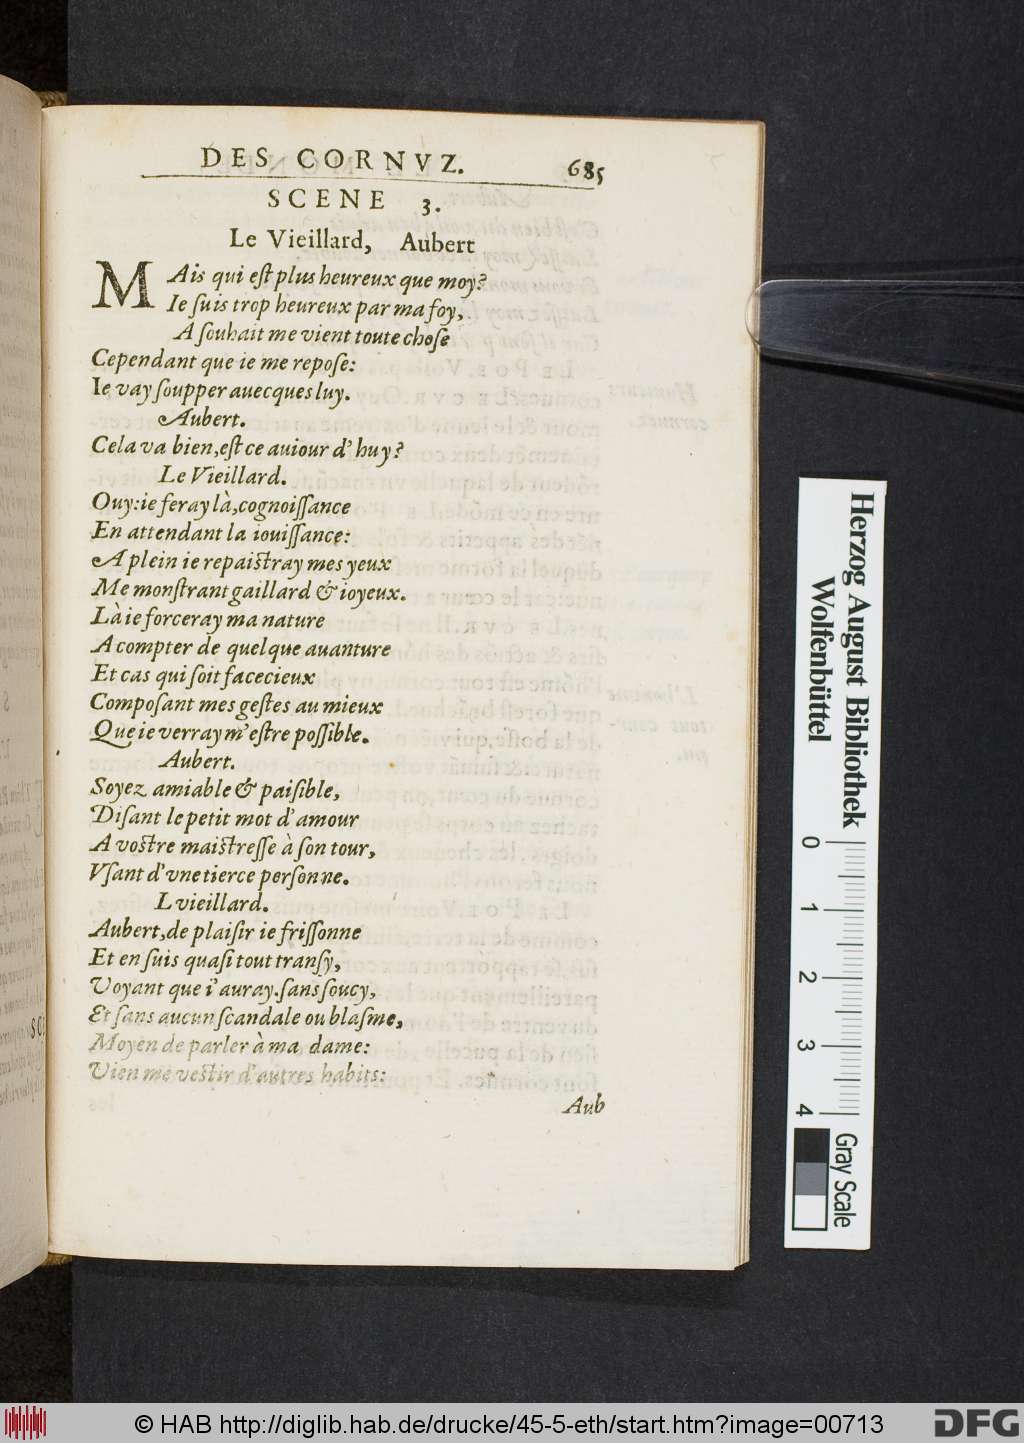 DES CORNVZ. 685
SCENE 3.
Le Vieillard, Aubert
MAis qui eſt plus heureux que moy?
Ie ſuis trop heureux par ma foy,
A ſouhait me vient toute choſe
Cependant que ie me repoſe:
Ie vay ſoupper auecques luy.
Aubert.
Cela va bien, eſt ce auiour d'huy?
Le Vieillard.
Ouy: ie feray là, cognoiſſance
En attendant la iouiſſance:
A plein ie repaiſtray mes yeux
Me monſtrant gaillard & ioyeux.
Là ie forceray ma nature
A compter de quelque auanture
Et cas qui ſoit facecieux
Compoſant mes geſtes au mieux
Que ie verray m'eſtre poſſible.
Aubert.
Soyez amiable & paiſible,
Diſant le petit mot d'amour
A voſtre maiſtreſſe à ſon tour,
Vſant d'vne tierce perſonne.
L vieillard.
Aubert, de plaiſir ie friſſonne
Et en ſuis quaſi tout tranſy,
Voyant que i'auray. ſans ſoucy,
Et ſans aucun ſcandale ou blaſme,
Moyen de parler à ma dame:
Vien me veſtir d'autres habits:
Aub
Herzog August Bibliothek
Wolfenbüttel
0 1 2 3 4
Gray Scale
© HAB http://diglib.hab.de/drucke/45-5-eth/start.htm?image=00713
DFG